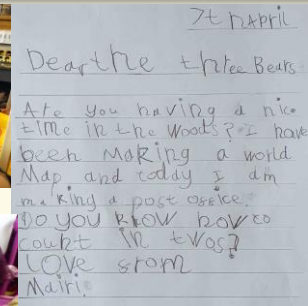 7th April
Dear the three Bears
Are you having a nice
time in the woods? I have
been making a world
Map and today I am
making a post ossice.
Do you know how to
count in twos?
Love srom
Mairi